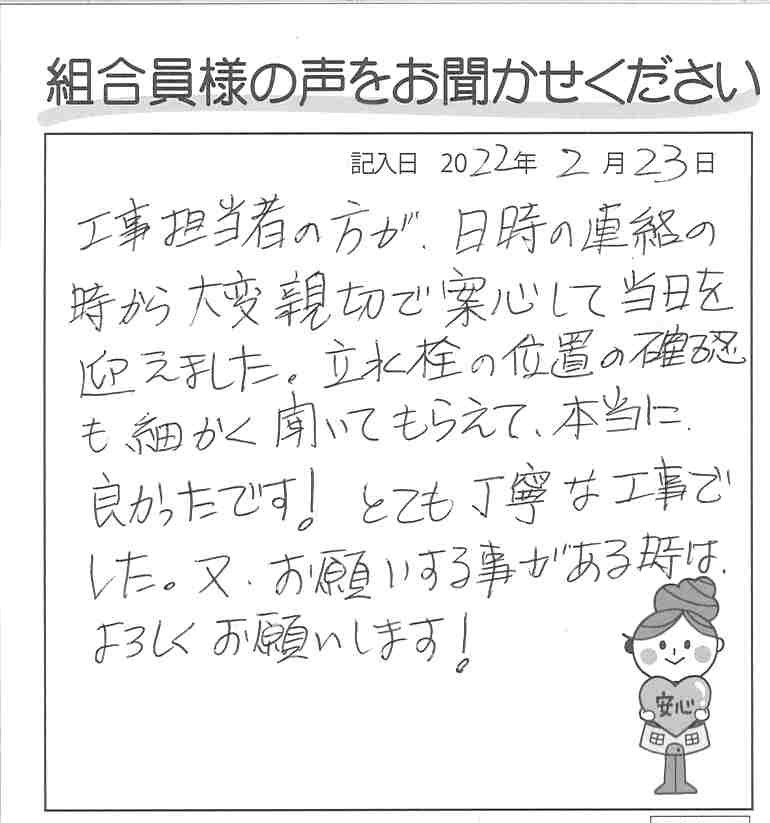 組合員様の声をお聞かせください
記入日 2022年 2月23日
工事担当者の方が、日時の連絡の
時から大変親切で安心して当日を
迎えました。立水栓の位置の確認
も細かく聞いてもらえて、本当に
良かったです! とても丁寧な工事で
した。又、お願いする事がある時は、
よろしくお願いします!
安心